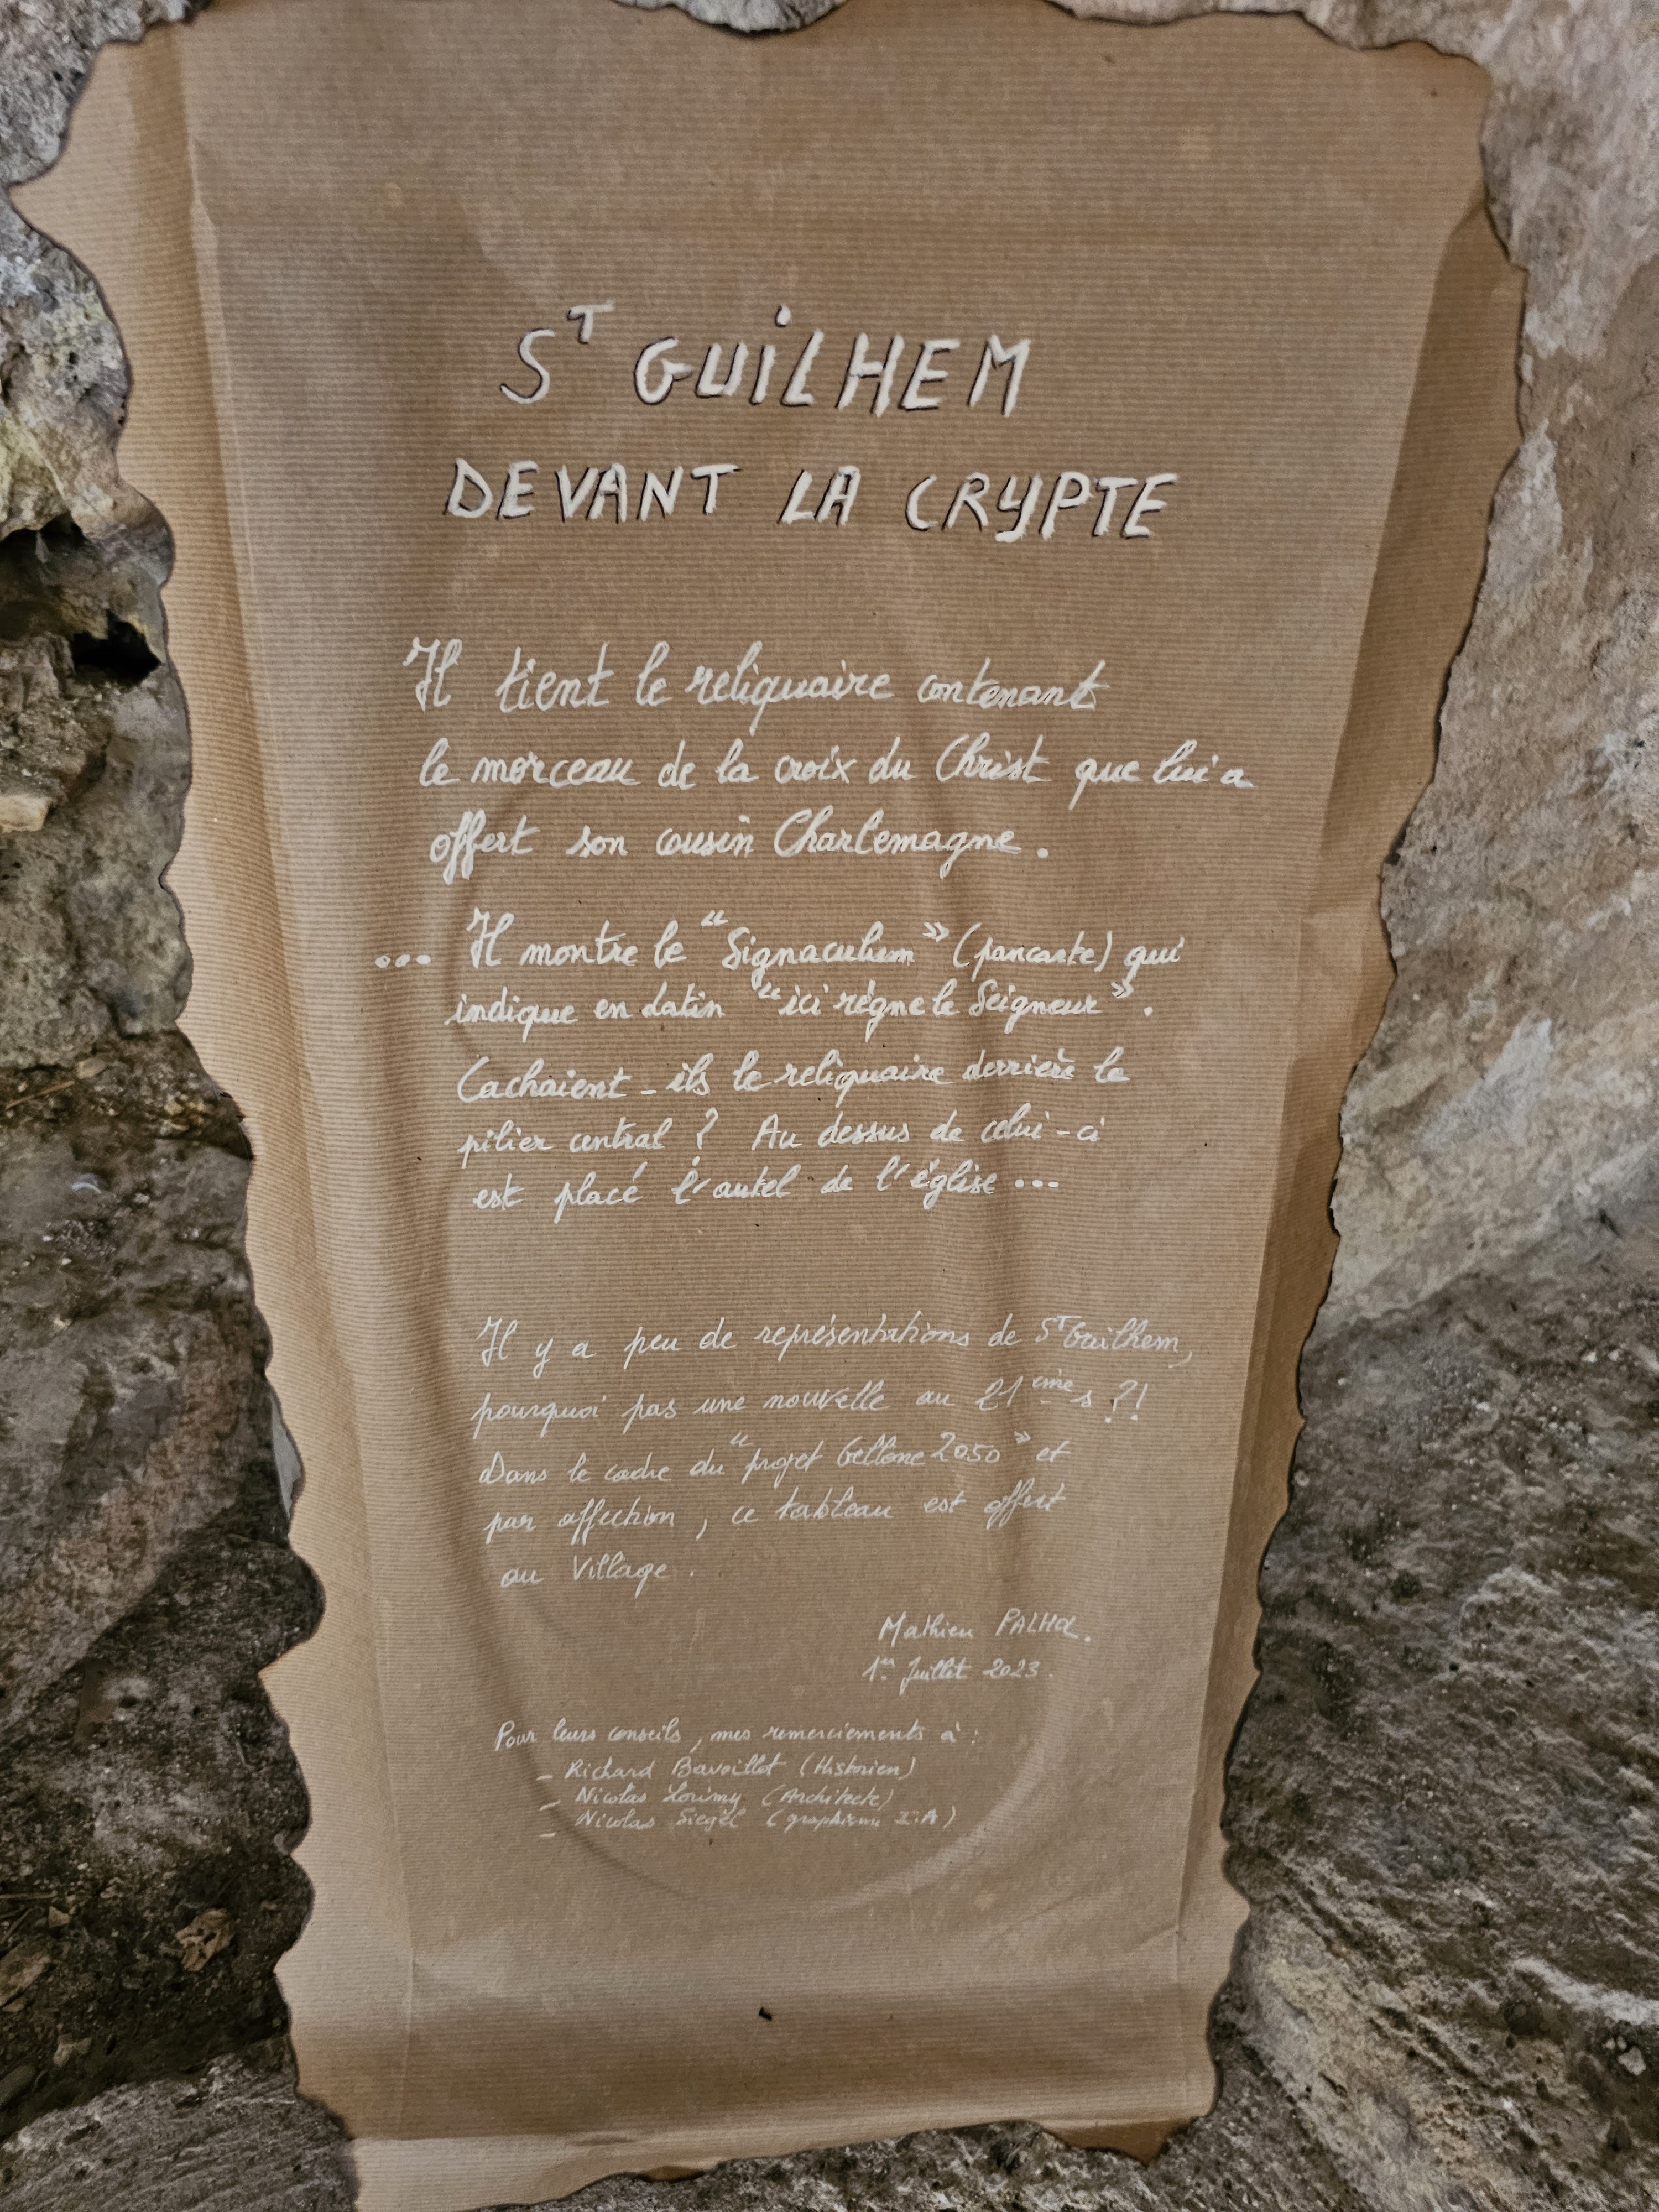 ST GUiLHEM
DEVANT LA CRYPTE
Il tient le reliquaire contenant
le morceau de la croix du Christ que lui a
offert son cousin Charlemagne.
... Il montre le "Signaculum" (pancarte) qui
indique en latin "ici règne le Seigneur".
Cachaient-ils le reliquaire derrière le
pilier central ? Au dessus de celui-ci
est placé l'autel de l'église...
Il y a peu de représentations de ST Guilhem,
pourquoi pas une nouvelle au 21ème s ?!
Dans le cadre du "projet Gellone 2050" et
par affection, ce tableau est offert
au Village.
Mathieu
1er Juillet 2023.
Pour leurs conseils, mes remerciements à :
- Richard Bavoillot (Historien)
- Nicolas (Architecte)
- Nicolas Siegel (graphisme I.A)